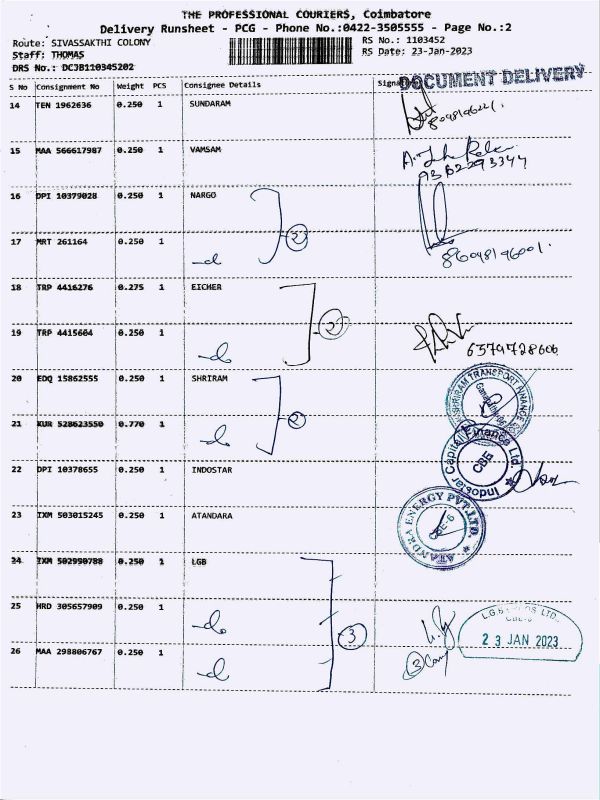 THE PROFESSIONAL COURIERS, Coimbatore
Delivery Runsheet - PCG - Phone No.:0422-3505555 - Page No.:2
Route: SIVASSAKTHI COLONY
RS No.: 1103452
Staff: THOMAS
RS Date: 23-Jan-2023
DRS No.: DCJB110345202
S No Consignment No Weight PCS Consignee Details
DOCUMENT DELIVERY
14 TEN 1962636 0.250 1 SUNDARAM
15 MAA 566617987 0.250 1 VAMSAM
16 DPI 10379028 0.250 1 NARGO
2
17 MRT 261164 0.250 1
18 TRP 4416276 0.275 1 EICHER
2
19 TRP 4415604 0.250 1
6379728606
20 EDQ 15862555 0.250 1 SHRIRAM
TRANSPORT FINANCE
2
21 KUR 528623550 0.770 1
Indostar Capital Finance Ltd.
CBE
22 DPI 10378655 0.250 1 INDOSTAR
23 IXM 503015245 0.250 1 ATANDARA
ATANDRA ENERGY PVT.LTD.
CBE-6
24 IXM 502990788 0.250 1 LGB
25 HRD 305657909 0.250 1
3
23 JAN 2023
26 MAA 298806767 0.250 1